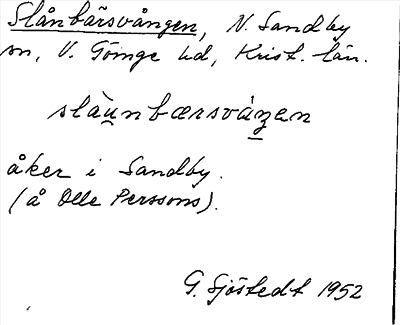 Slånbärsvången, N. Sandby
sn, V. Göinge hd, Krist. län.
slàu̲nbærsvàŋ̲en
åker i Sandby.
(å Olle Perssons).
G. Sjöstedt 1952